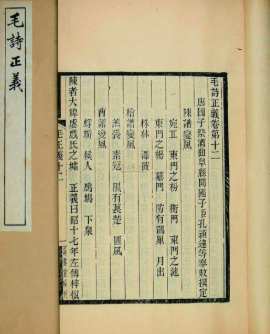 毛詩正義
毛詩正義卷第十二
唐國子祭酒上護軍曲阜縣開國子臣孔穎達等奉敕撰定
陳譜變風
宛丘 東門之枌 衡門 東門之池
東門之楊 墓門 防有鵲巢 月出
株林 澤陂
檜譜變風
羔裘 素冠 隰有萇楚 匪風
曹譜變風
蜉蝣 候人 鳲鳩 下泉
陳者大皥虙戲氏之墟 正義曰昭十七年左傳梓慎
毛正義十二